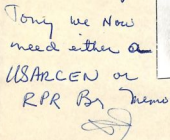 Tony we Now
need either a
USARCEN or
RPR By Memo